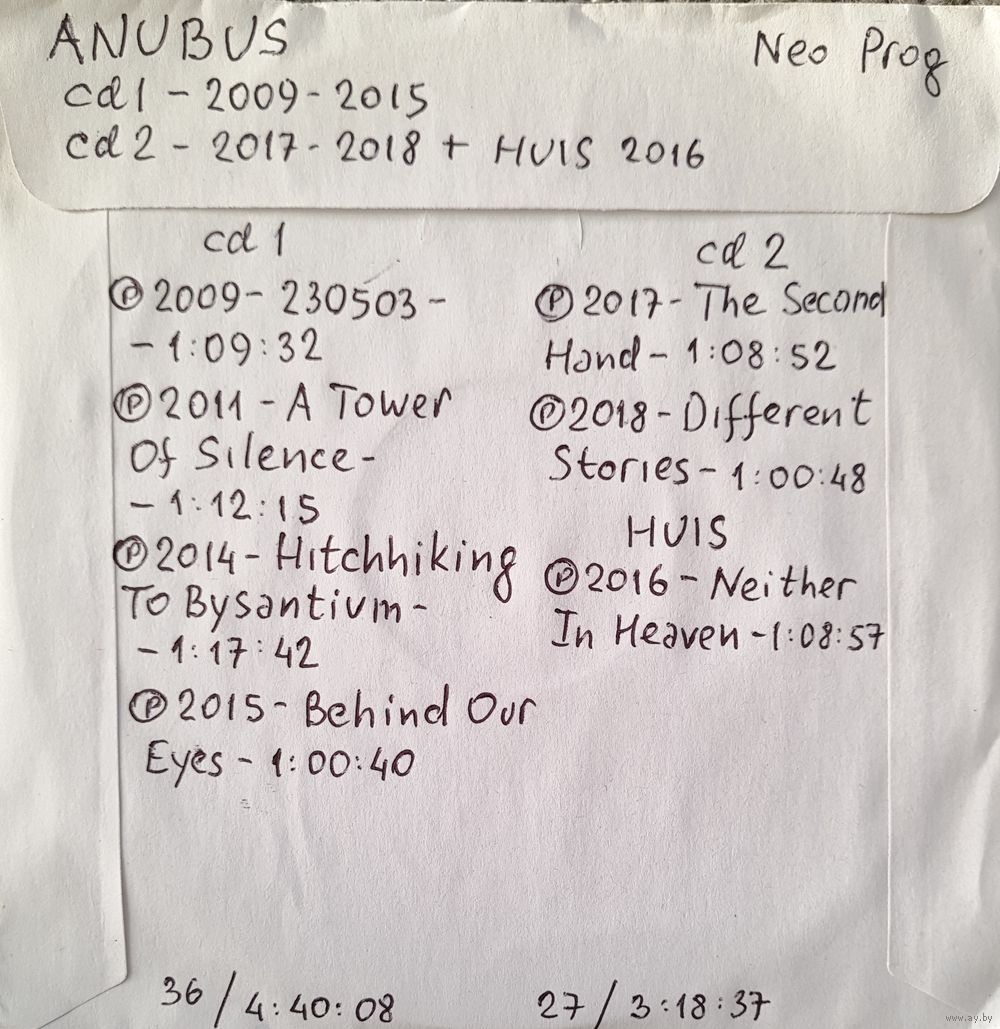 ANUBUS
Neo Prog
cd1 - 2009 - 2015
cd2 - 2017 - 2018 + HUIS 2016
cd 1
Ⓟ 2009 - 230503 -
- 1:09:32
Ⓟ 2011 - A Tower
Of Silence -
- 1:12:15
Ⓟ 2014 - Hitchhiking
To Bysantium -
- 1:17:42
Ⓟ 2015 - Behind Our
Eyes - 1:00:40
36 / 4:40:08
cd 2
Ⓟ 2017 - The Second
Hand - 1:08:52
Ⓟ 2018 - Different
Stories - 1:00:48
HUIS
Ⓟ 2016 - Neither
In Heaven - 1:08:57
27 / 3:18:37
www.ay.by